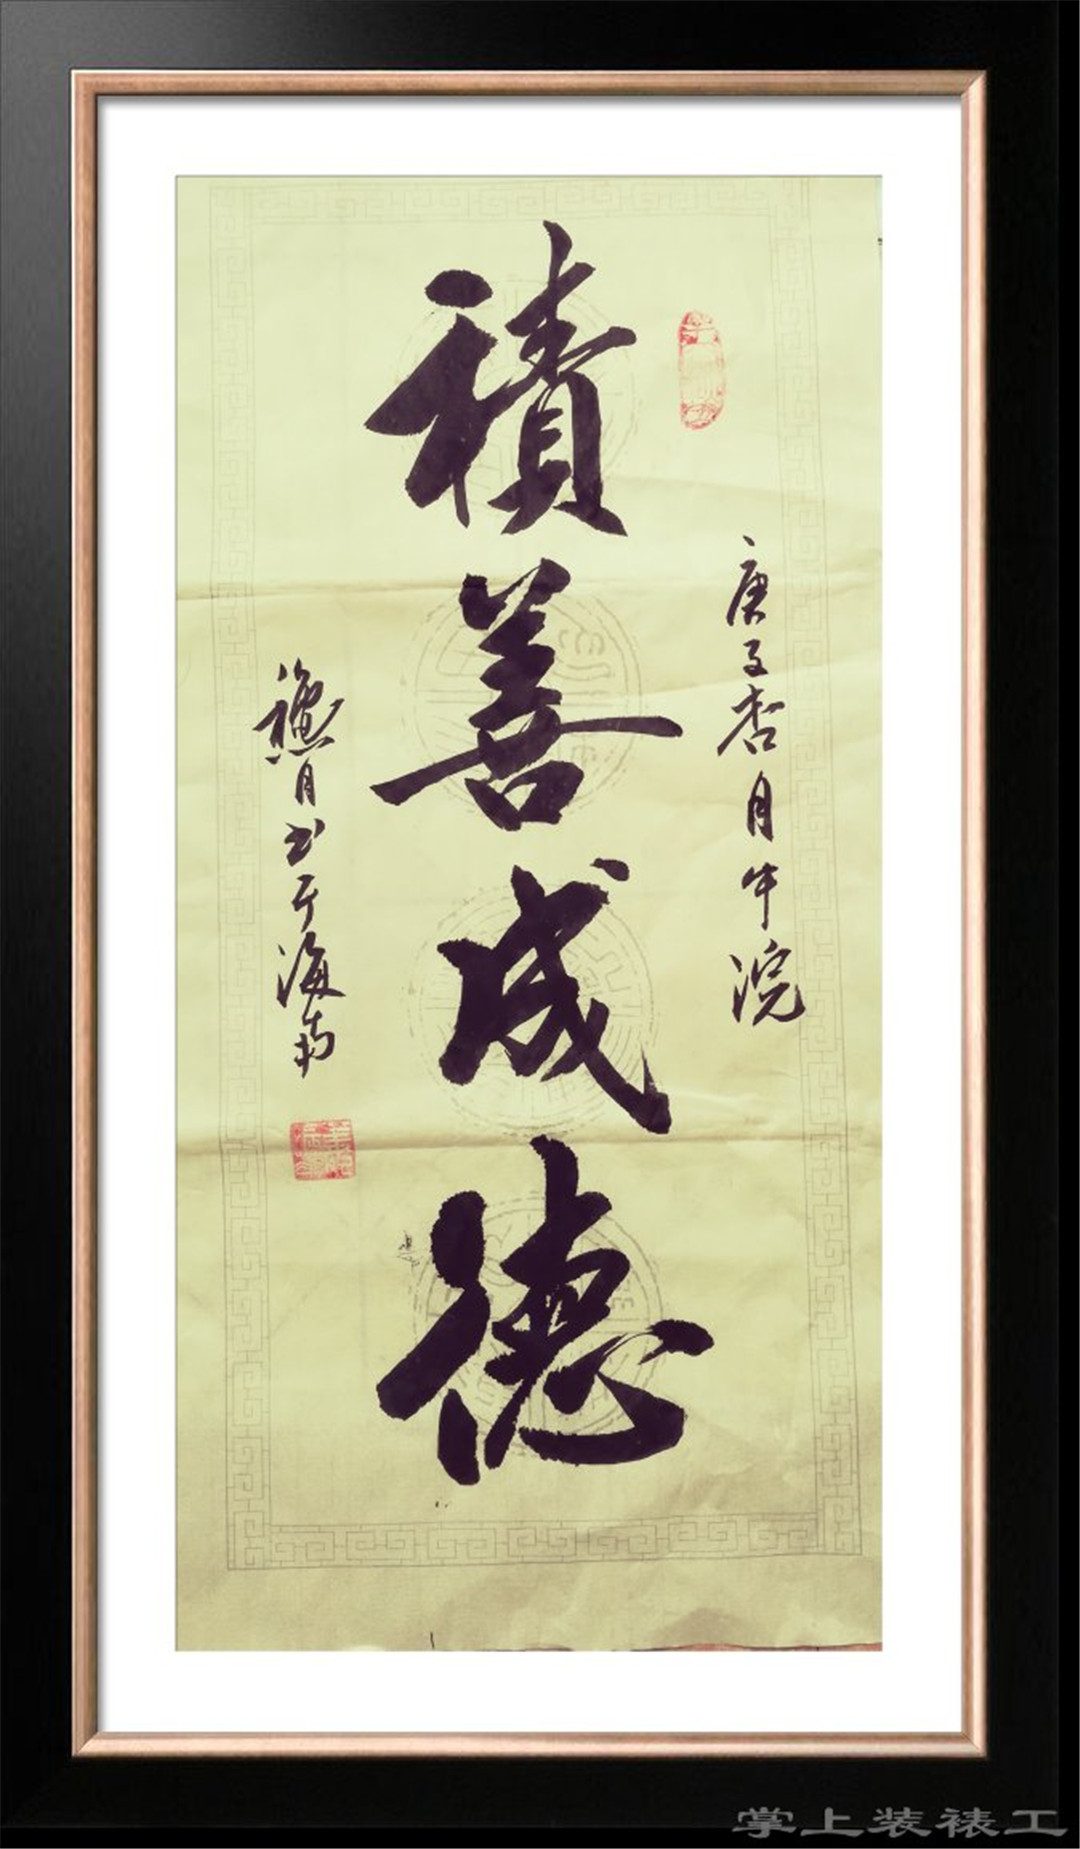 積善成德
庚子杏月牛浣
月书于海南
掌上装裱工